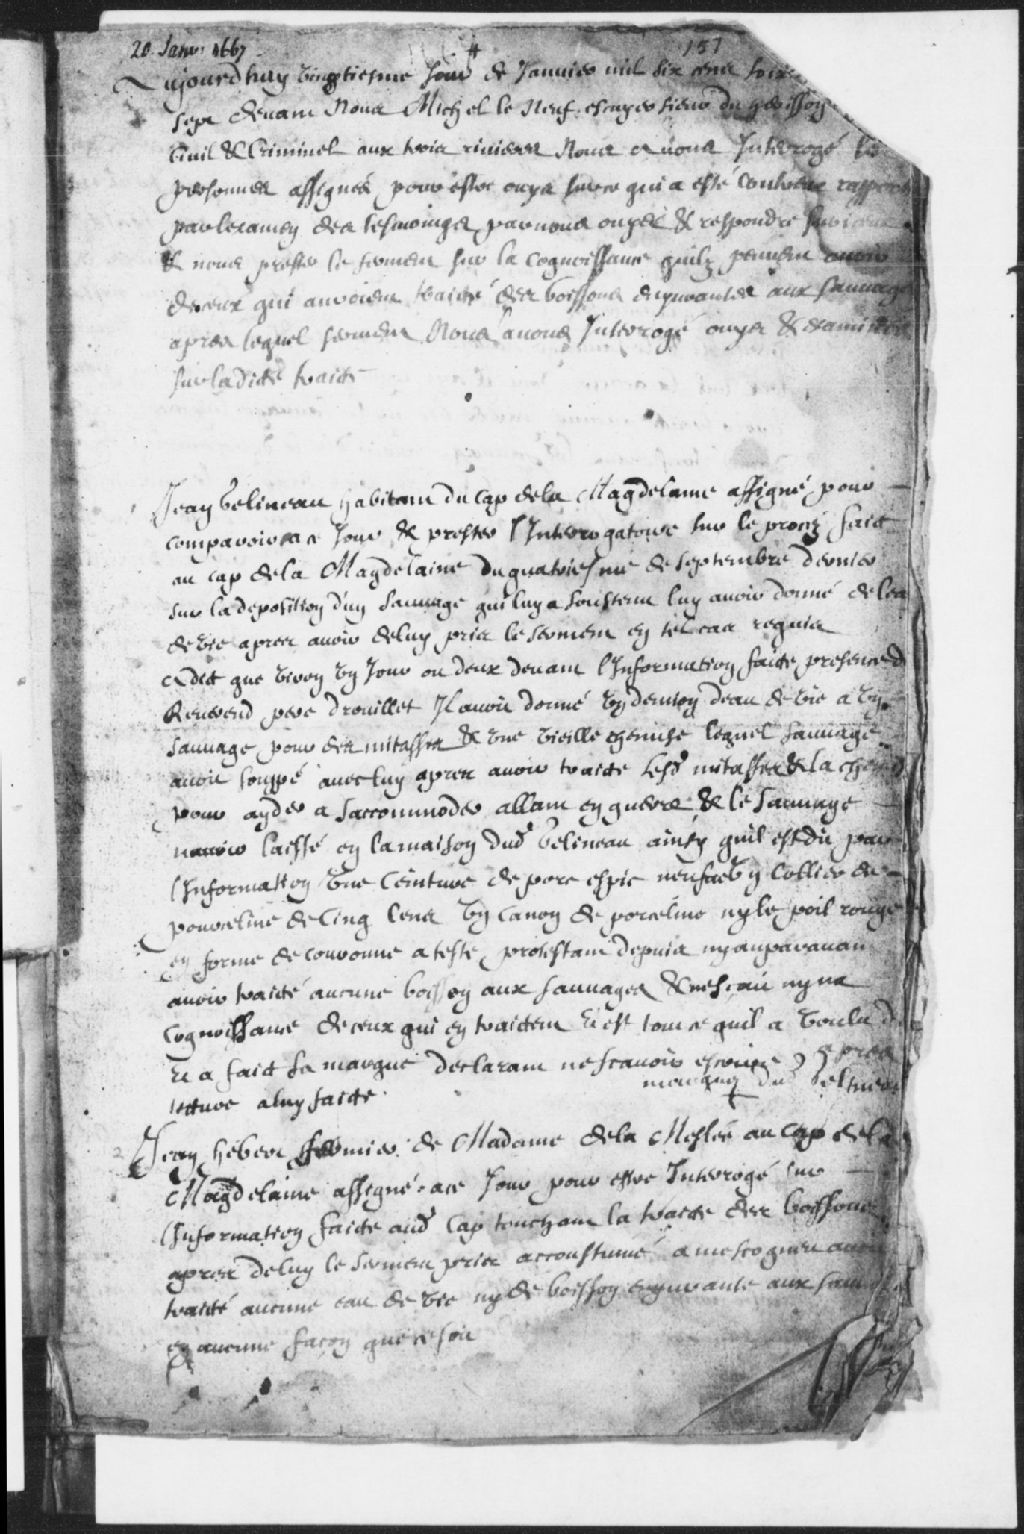 20 Janv. 1667
151
Aujourdhuy vingtiesme Jour de Janvier mil six cens soixa
sept devant Nous Michel le Neuf escuyer sieur du herisson
Civil & Criminel aux trois rivieres Nous avons Interrogé les
personnes assignés pour estre ouys sur ce qui a esté rapport
par lexamen des tesmoings par nous ouyes & respondre
& nous prester le serment sur la cognoissance quilz peuvent avoir
de ceux qui auroient traicté des boissons enyvrantes aux sauvages
apres lequel serment Nous avons Interrogé ouys & examiné
sur ladicte traicte
Jean velineau habitant du Cap dela Magdelaine assigné pour
comparoir a ce Jour & prester l'Interrogatoire sur le procez faict
au cap de la Magdelaine du quatriesme de septembre dernier
sur la deposition d'un sauvage qui luy a soustenu luy avoir donné de leau
de vie apres avoir de luy pris le serment en tel cas requis
A dit que environ un Jour ou deux devant l'Information faicte presence du
Reverend pere drouillet Il avoit donné un demion deau de vie a un
sauvage pour des mitasses & une vieille chemise lequel sauvage
avoit souppé avec luy apres avoir traicte lesd mitasses & la chemise
pour ayder a saccommoder allant en guerre & le sauvage
navoir laissé en la maison dud velineau ainsy quil est dit par
l'Information une Ceinture de porc espic neufve un Collier de
pourceline de Cinq Cens un Canon de porceline ny le poil rouge
en forme de couronne a teste protestant depuis ny auparavant
avoir traicté aucune boisson aux sauvages & ne sçait ny na
cognoissance de ceux qui en traictent et est tout ce quil a voulu dire
et a faict sa marque declarant ne scavoir escrire apres
lecture a luy faicte. marque du velineau
+
Jean hebert fermier de Madame dela Meslée au Cap de la
Magdelaine assigné a ce Jour pour estre Interrogé sur
l'Information faicte aud Cap touchant la traicte des boissons
apres de luy le serment pris accoustumé a mescogneu avoir
traicté aucune eau de vie ny de boisson enyvrante aux sauvages
en aucune façon que ce soit